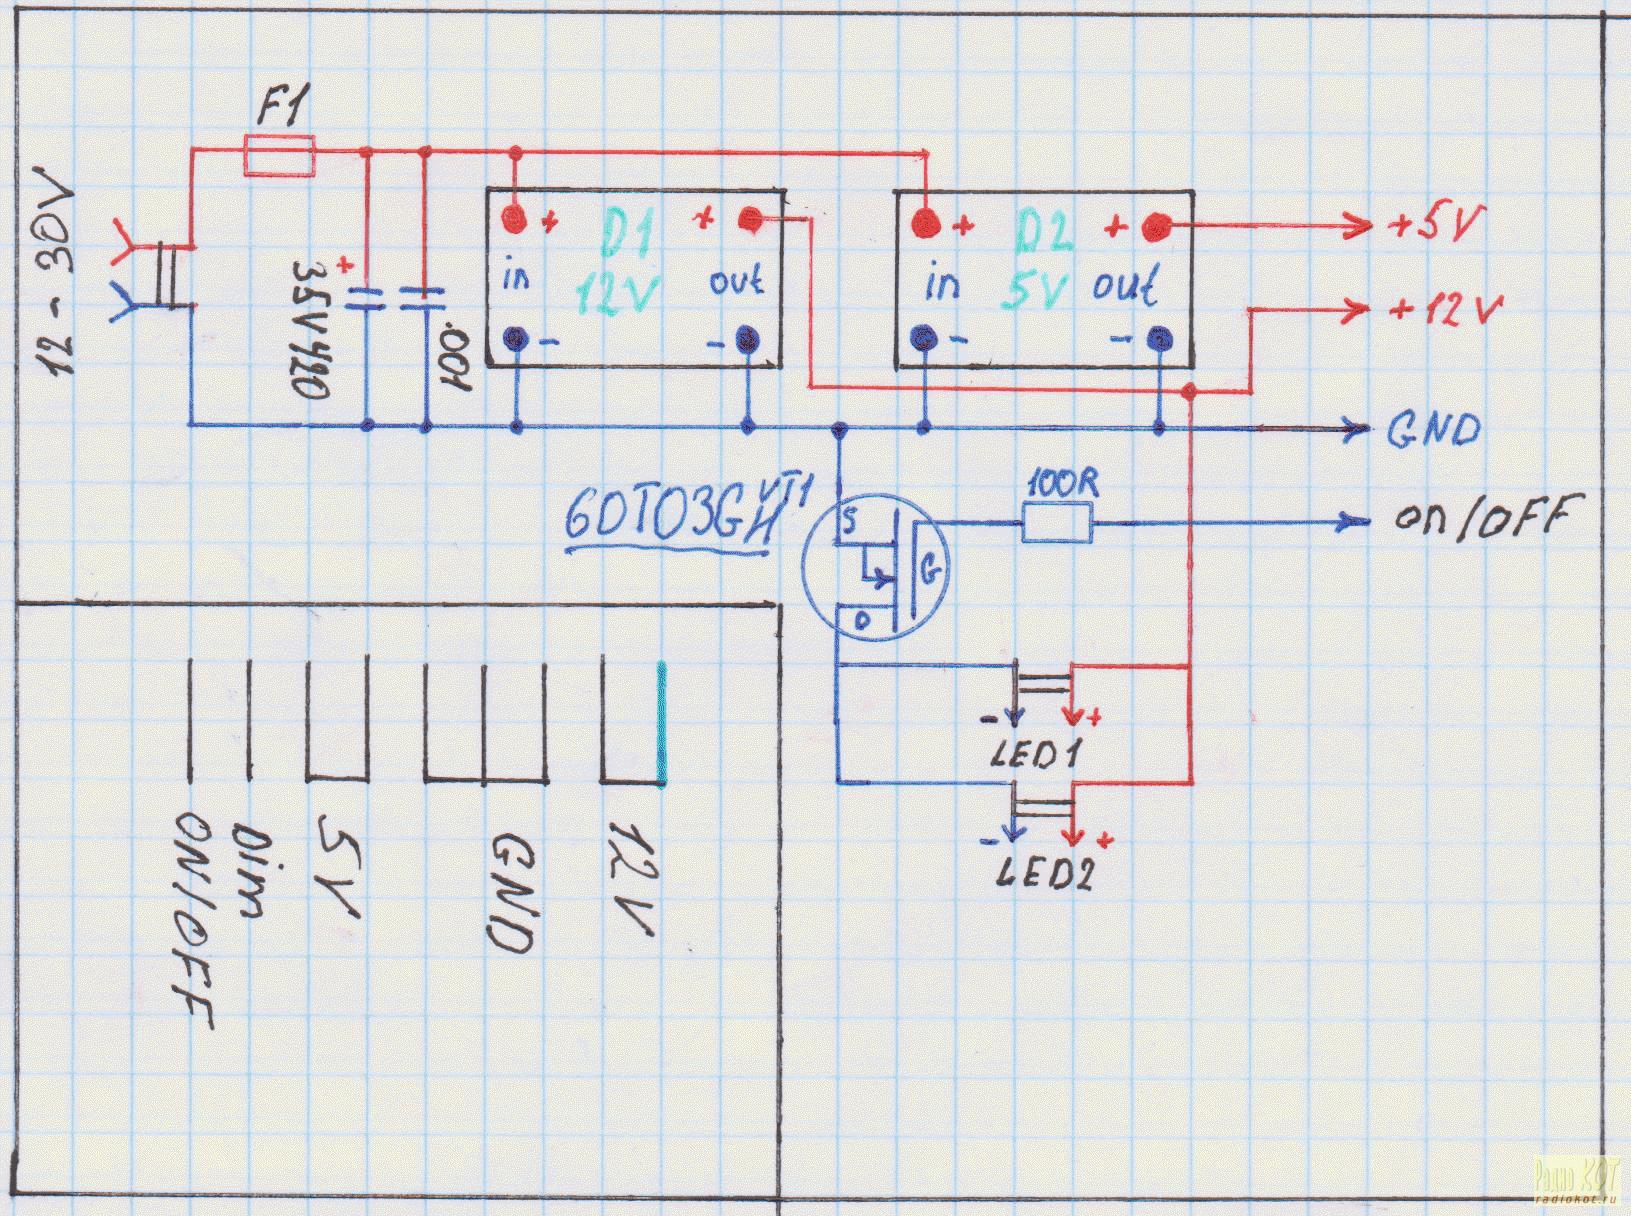 F1
12 - 30V
+
35V 420
.001
+ D1 +
in 12V out
- -
+ D2 +
in 5V out
- -
+5V
+12V
GND
6DT03GH
VT1
S
G
D
100R
on/OFF
- +
LED1
- +
LED2
ON/OFF
Dim
5V
GND
12V
Радио КОТ
radiokot.ru